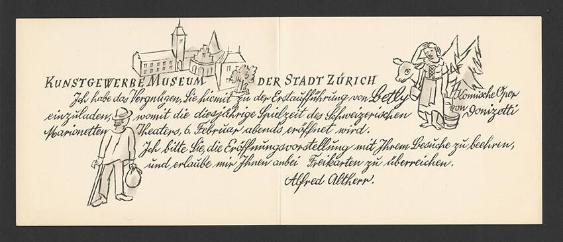 KUNSTGEWERBE MUSEUM DER STADT ZÜRICH
Ich habe das Vergnügen, Sie hiemit zu der Erstaufführung von Betly Komische Oper
einzuladen, womit die diesjährige Spielzeit des Schweizerischen von Donizetti
Marionetten Theaters, 6. Februar abends eröffnet wird.
Ich bitte Sie, die Eröffnungsvorstellung mit Ihrem Besuche zu beehren,
und erlaube mir Ihnen anbei Freikarten zu überreichen.
Alfred Altherr.